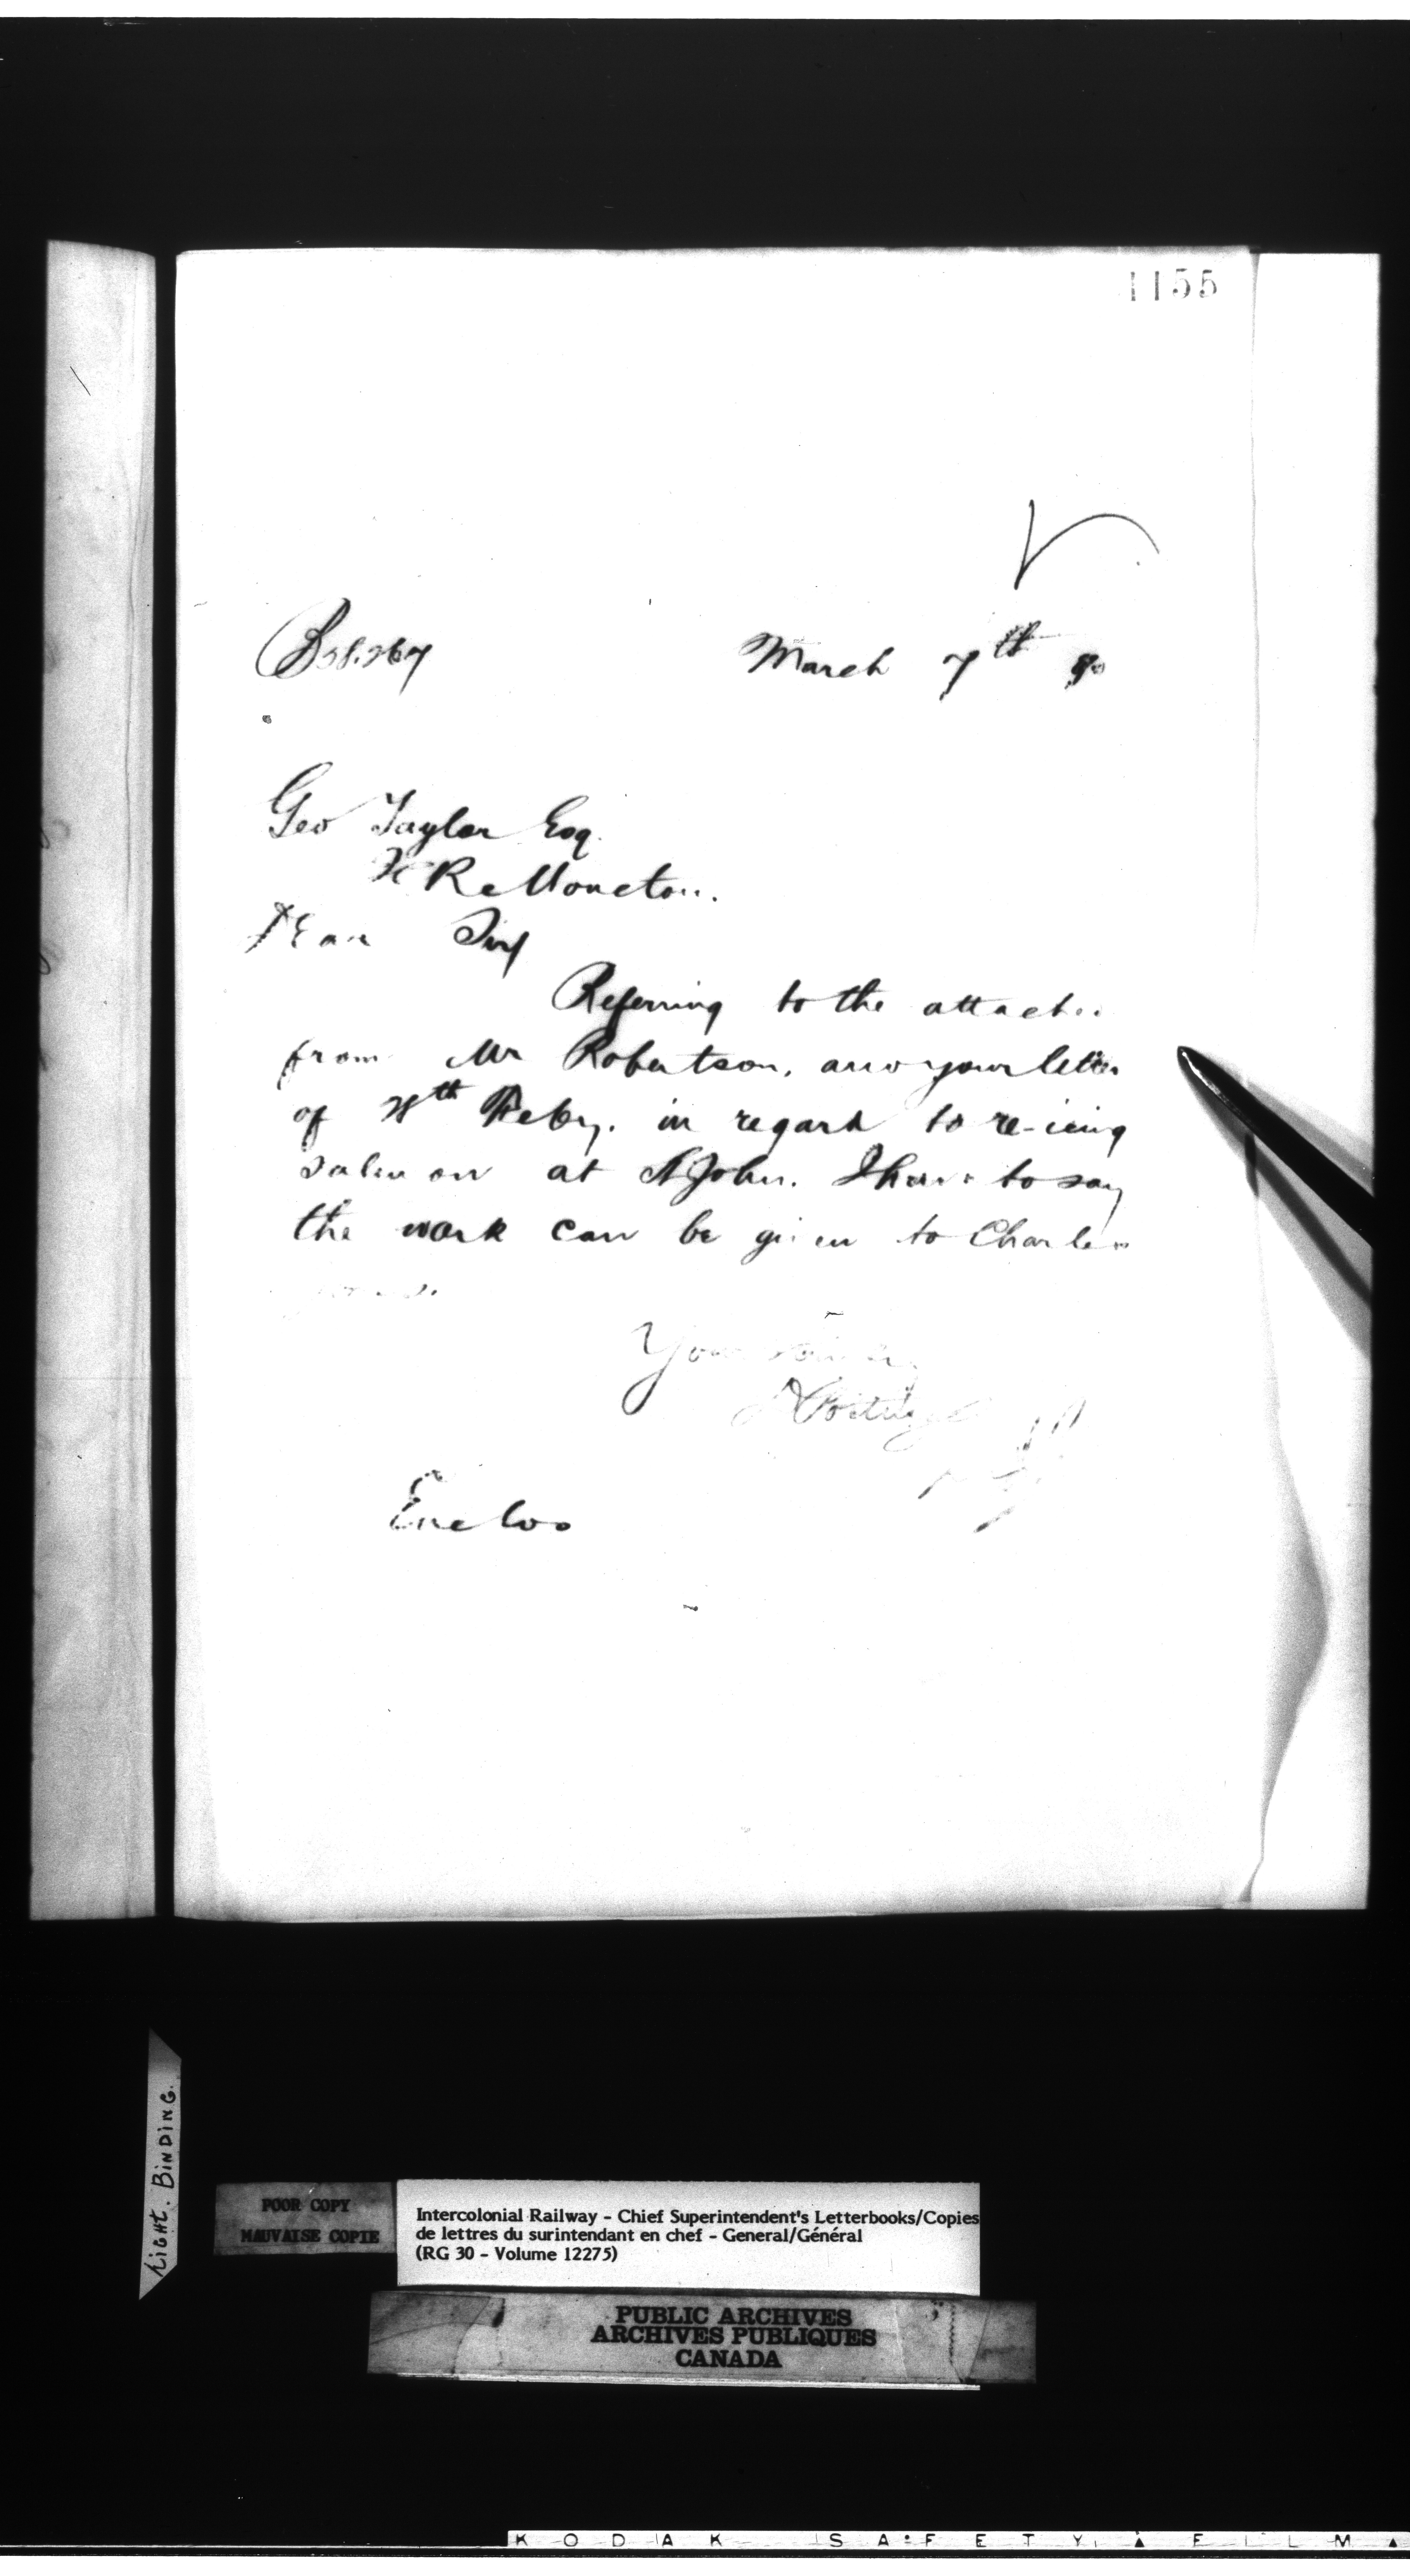 1155
B28.267 March 7th 90
Geo Taylor Esq.
Moncton.
Dear Sir
Referring to the attached
from Mr Robertson, and your letter
of 28th Feby. in regard to re-icing
salmon at St John. I have to say
the work can be given to Charles
Yours
Enclos
TIGHT. BINDING.
POOR COPY
MAUVAISE COPIE
Intercolonial Railway - Chief Superintendent's Letterbooks/Copies
de lettres du surintendant en chef - General/Général
(RG 30 - Volume 12275)
PUBLIC ARCHIVES
ARCHIVES PUBLIQUES
CANADA
KODAK SAFETY FILM